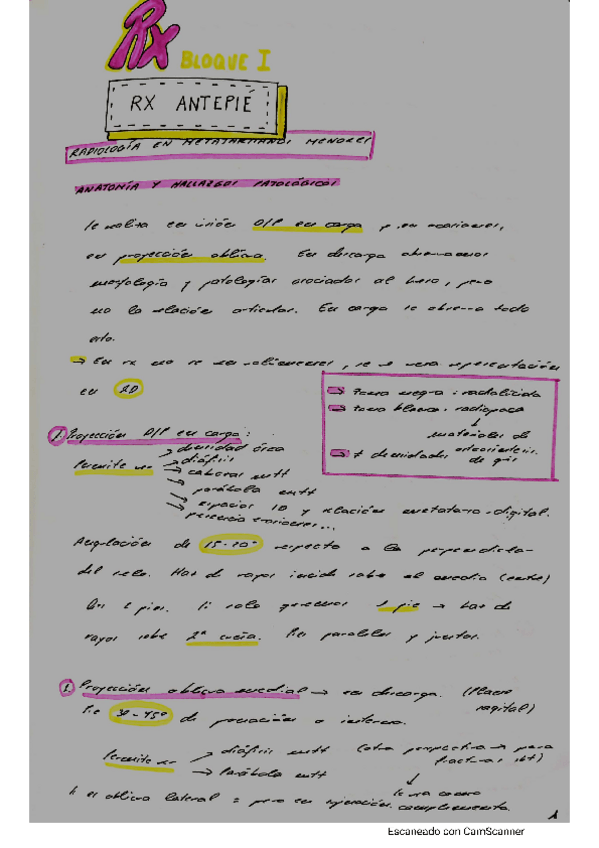 Rx BLOQUE I
RX ANTEPIÉ
RADIOLOGÍA EN METATARSIANOS MENORES
ANATOMÍA Y HALLAZGOS PATOLÓGICOS
Se realiza en visión D/P en carga y, en ocasiones,
en proyección oblicua. En descarga observamos
morfología y patologías asociadas al hueso, pero
no la relación articular. En carga se observa todo
esto.
→ En rx no se ven volúmenes, se ve una representación
en 2D
→ zona negra: radiolúcida
→ zona blanca: radiopaca
↓
materiales de
osteosíntesis
→ ≠ densidades
1. Proyección D/P en carga:
Permite ver → densidad ósea
→ diáfisis
→ cabezas mtt
→ parábola mtt
→ espacios ID y relación metatarso-digital.
presencia erosiones...
Angulación de 15-20° respecto a la perpendicular
del suelo. Haz de rayos incide sobre el medio (centro)
los 2 pies. Si solo queremos 1 pie → haz de
rayos sobre 2ª cuña. Pies paralelos y juntos.
Proyección oblicua medial → en descarga. (Plano
sagital)
Pie 30-45° de pronación o interna.
Permite ver → diáfisis mtt (otra perspectiva → para
fracturas)
→ Parábola mtt
↓
complementa
oblicua lateral = pero en
1
Escaneado con CamScanner